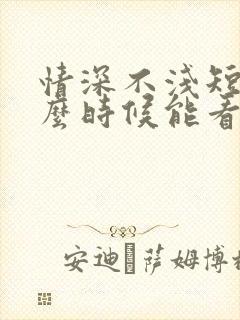 情深不淺短
麼時候能看
安迪·萨姆博